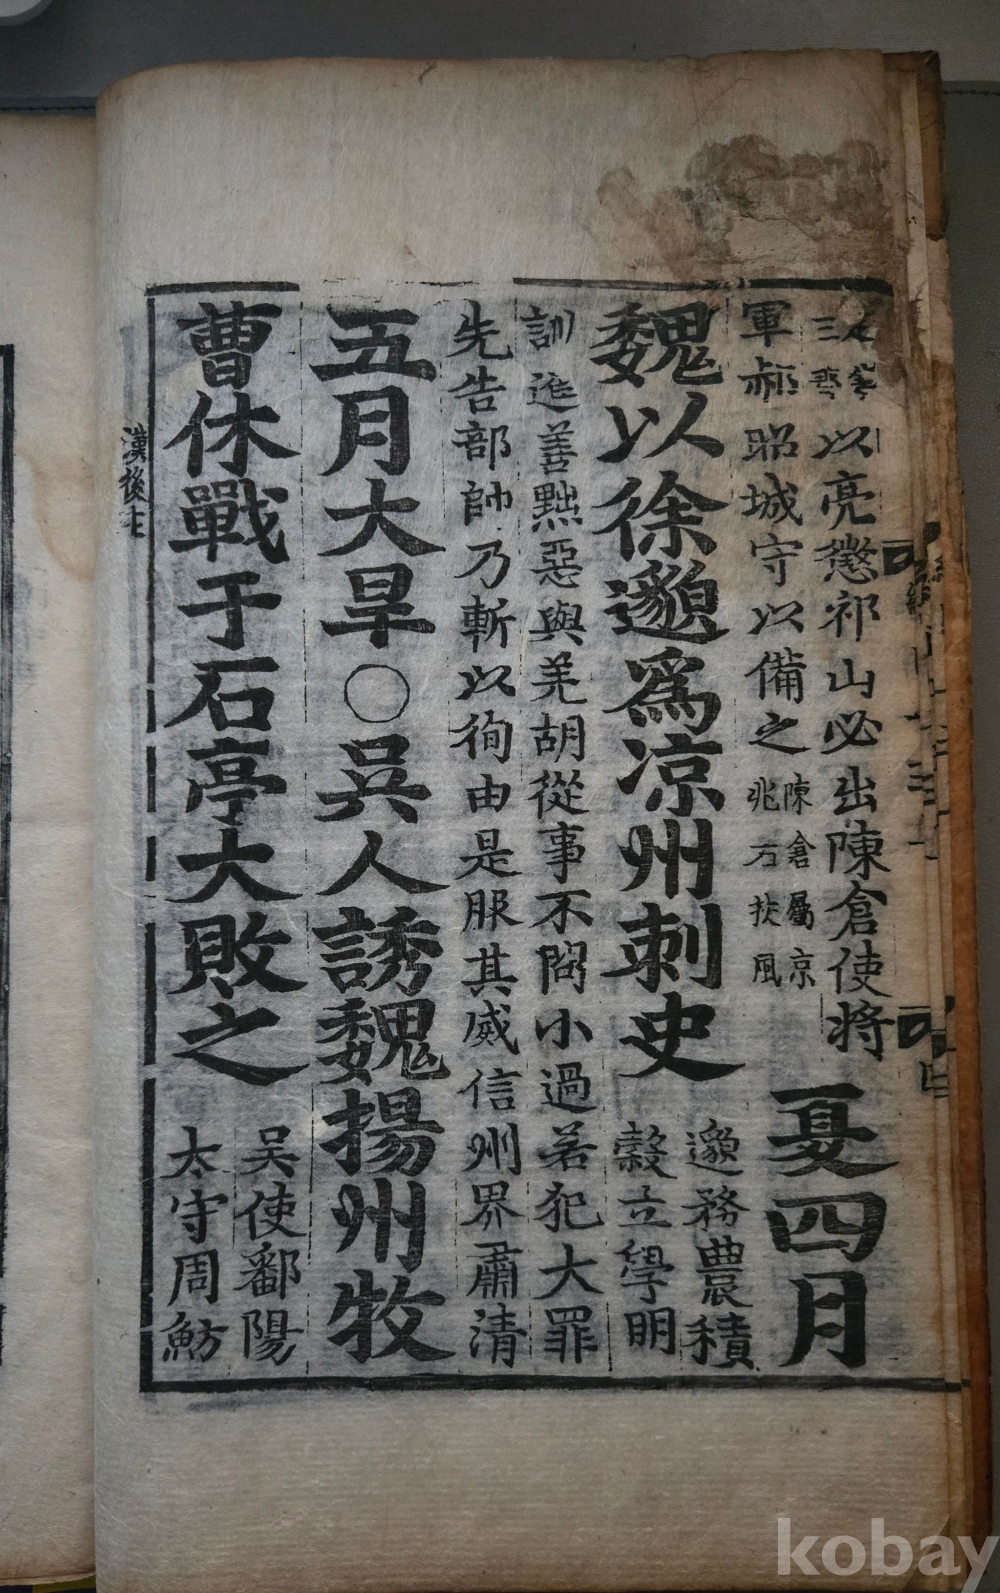 以亮懲祁山必出陳倉使將
軍郝昭城守以備之
陳倉屬京
兆右扶風
夏四月
魏以徐邈爲涼州刺史
邈務農積
穀立學明
訓進善黜惡與羌胡從事不問小過若犯大罪
先告部帥乃斬以徇由是服其威信州界肅清
五月大旱○吳人誘魏揚州牧
曹休戰于石亭大敗之
吳使鄱陽
太守周魴
漢後七
kobay